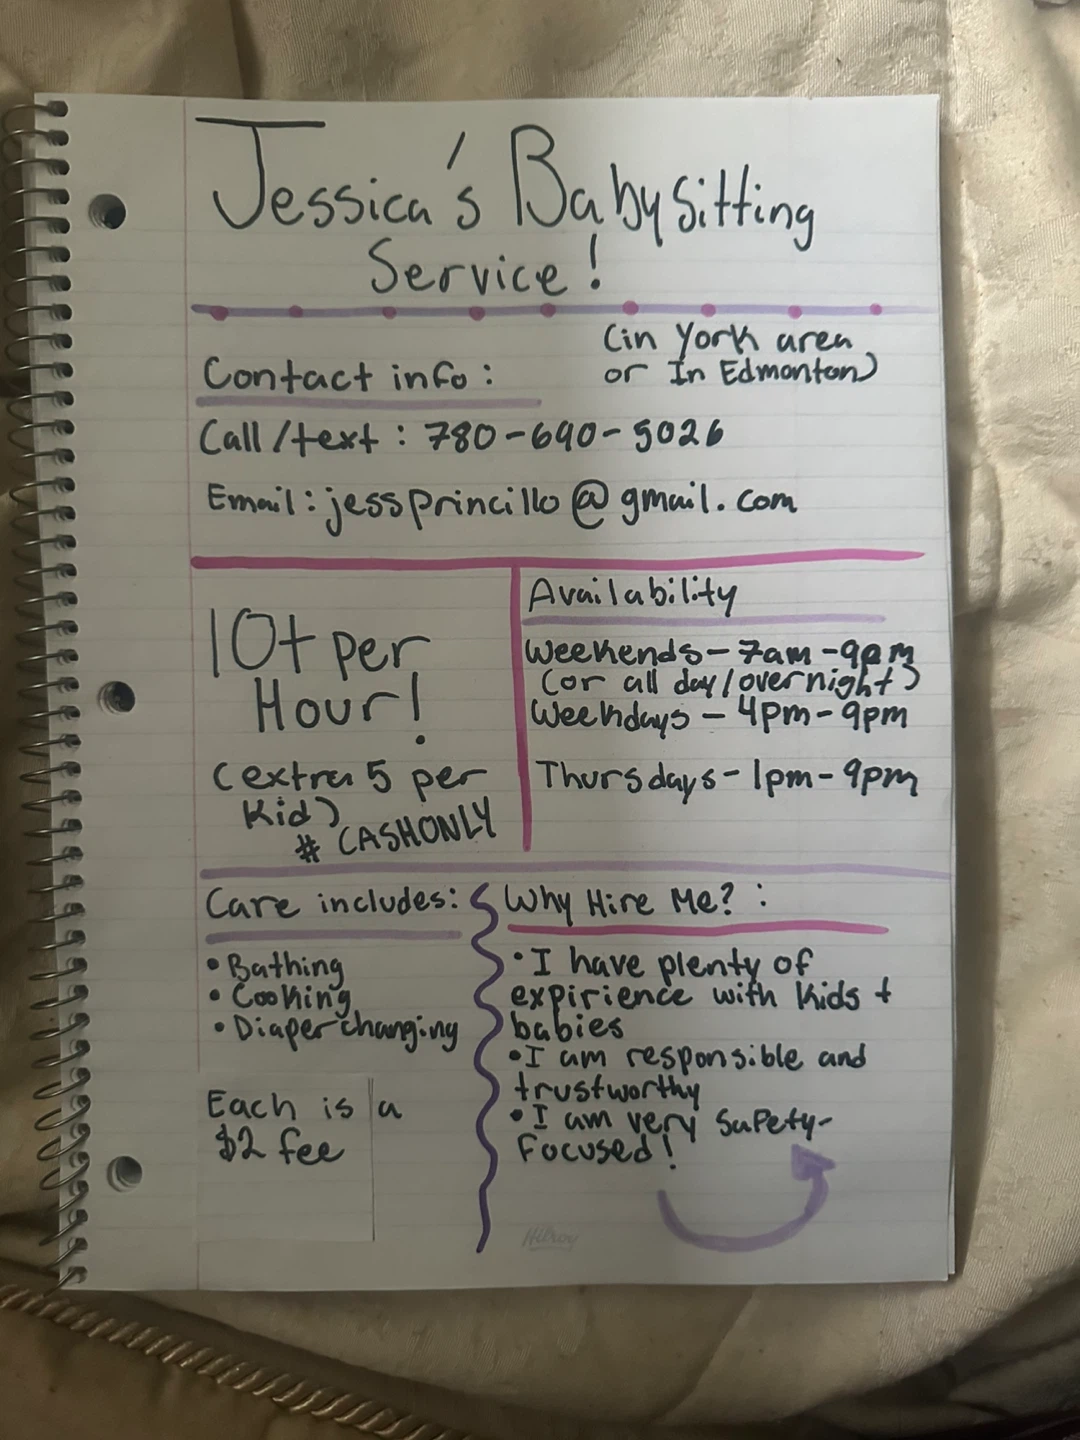 Jessica's Babysitting
Service!
(in York area
or In Edmonton)
Contact info:
Call/text: 780-690-5026
Email: jessprincillo@gmail.com
10+ per
Hour!
(extra 5 per
Kid)
# CASHONLY
Availability
Weekends - 7am - 9pm
(or all day/overnight)
Weekdays - 4pm - 9pm
Thursdays - 1pm - 9pm
Care includes:
• Bathing
• Cooking
• Diaper changing
Each is a
$2 fee
Why Hire Me? :
• I have plenty of
expirience with kids +
babies
• I am responsible and
trustworthy
• I am very safety-
Focused!
Hilroy